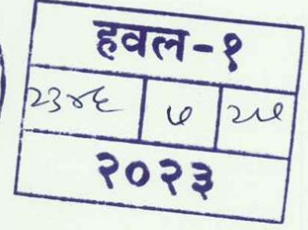 हवल-१
२३४६ ५ २५
२०२३